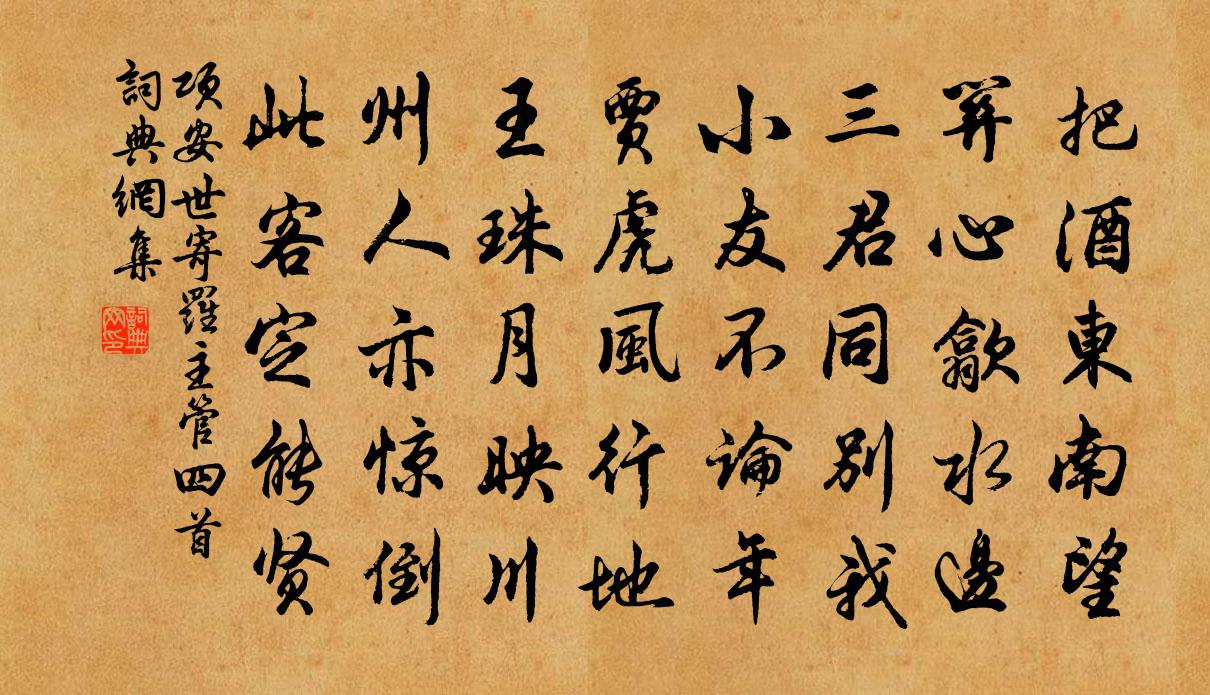 把酒東南望
心歙水邊
三君同別我
小友不論年
賈虎風行地
王珠月映川
州人亦惊倒
此客定能贤
項安世寄羅主管四首
詞典網集
詞典网印